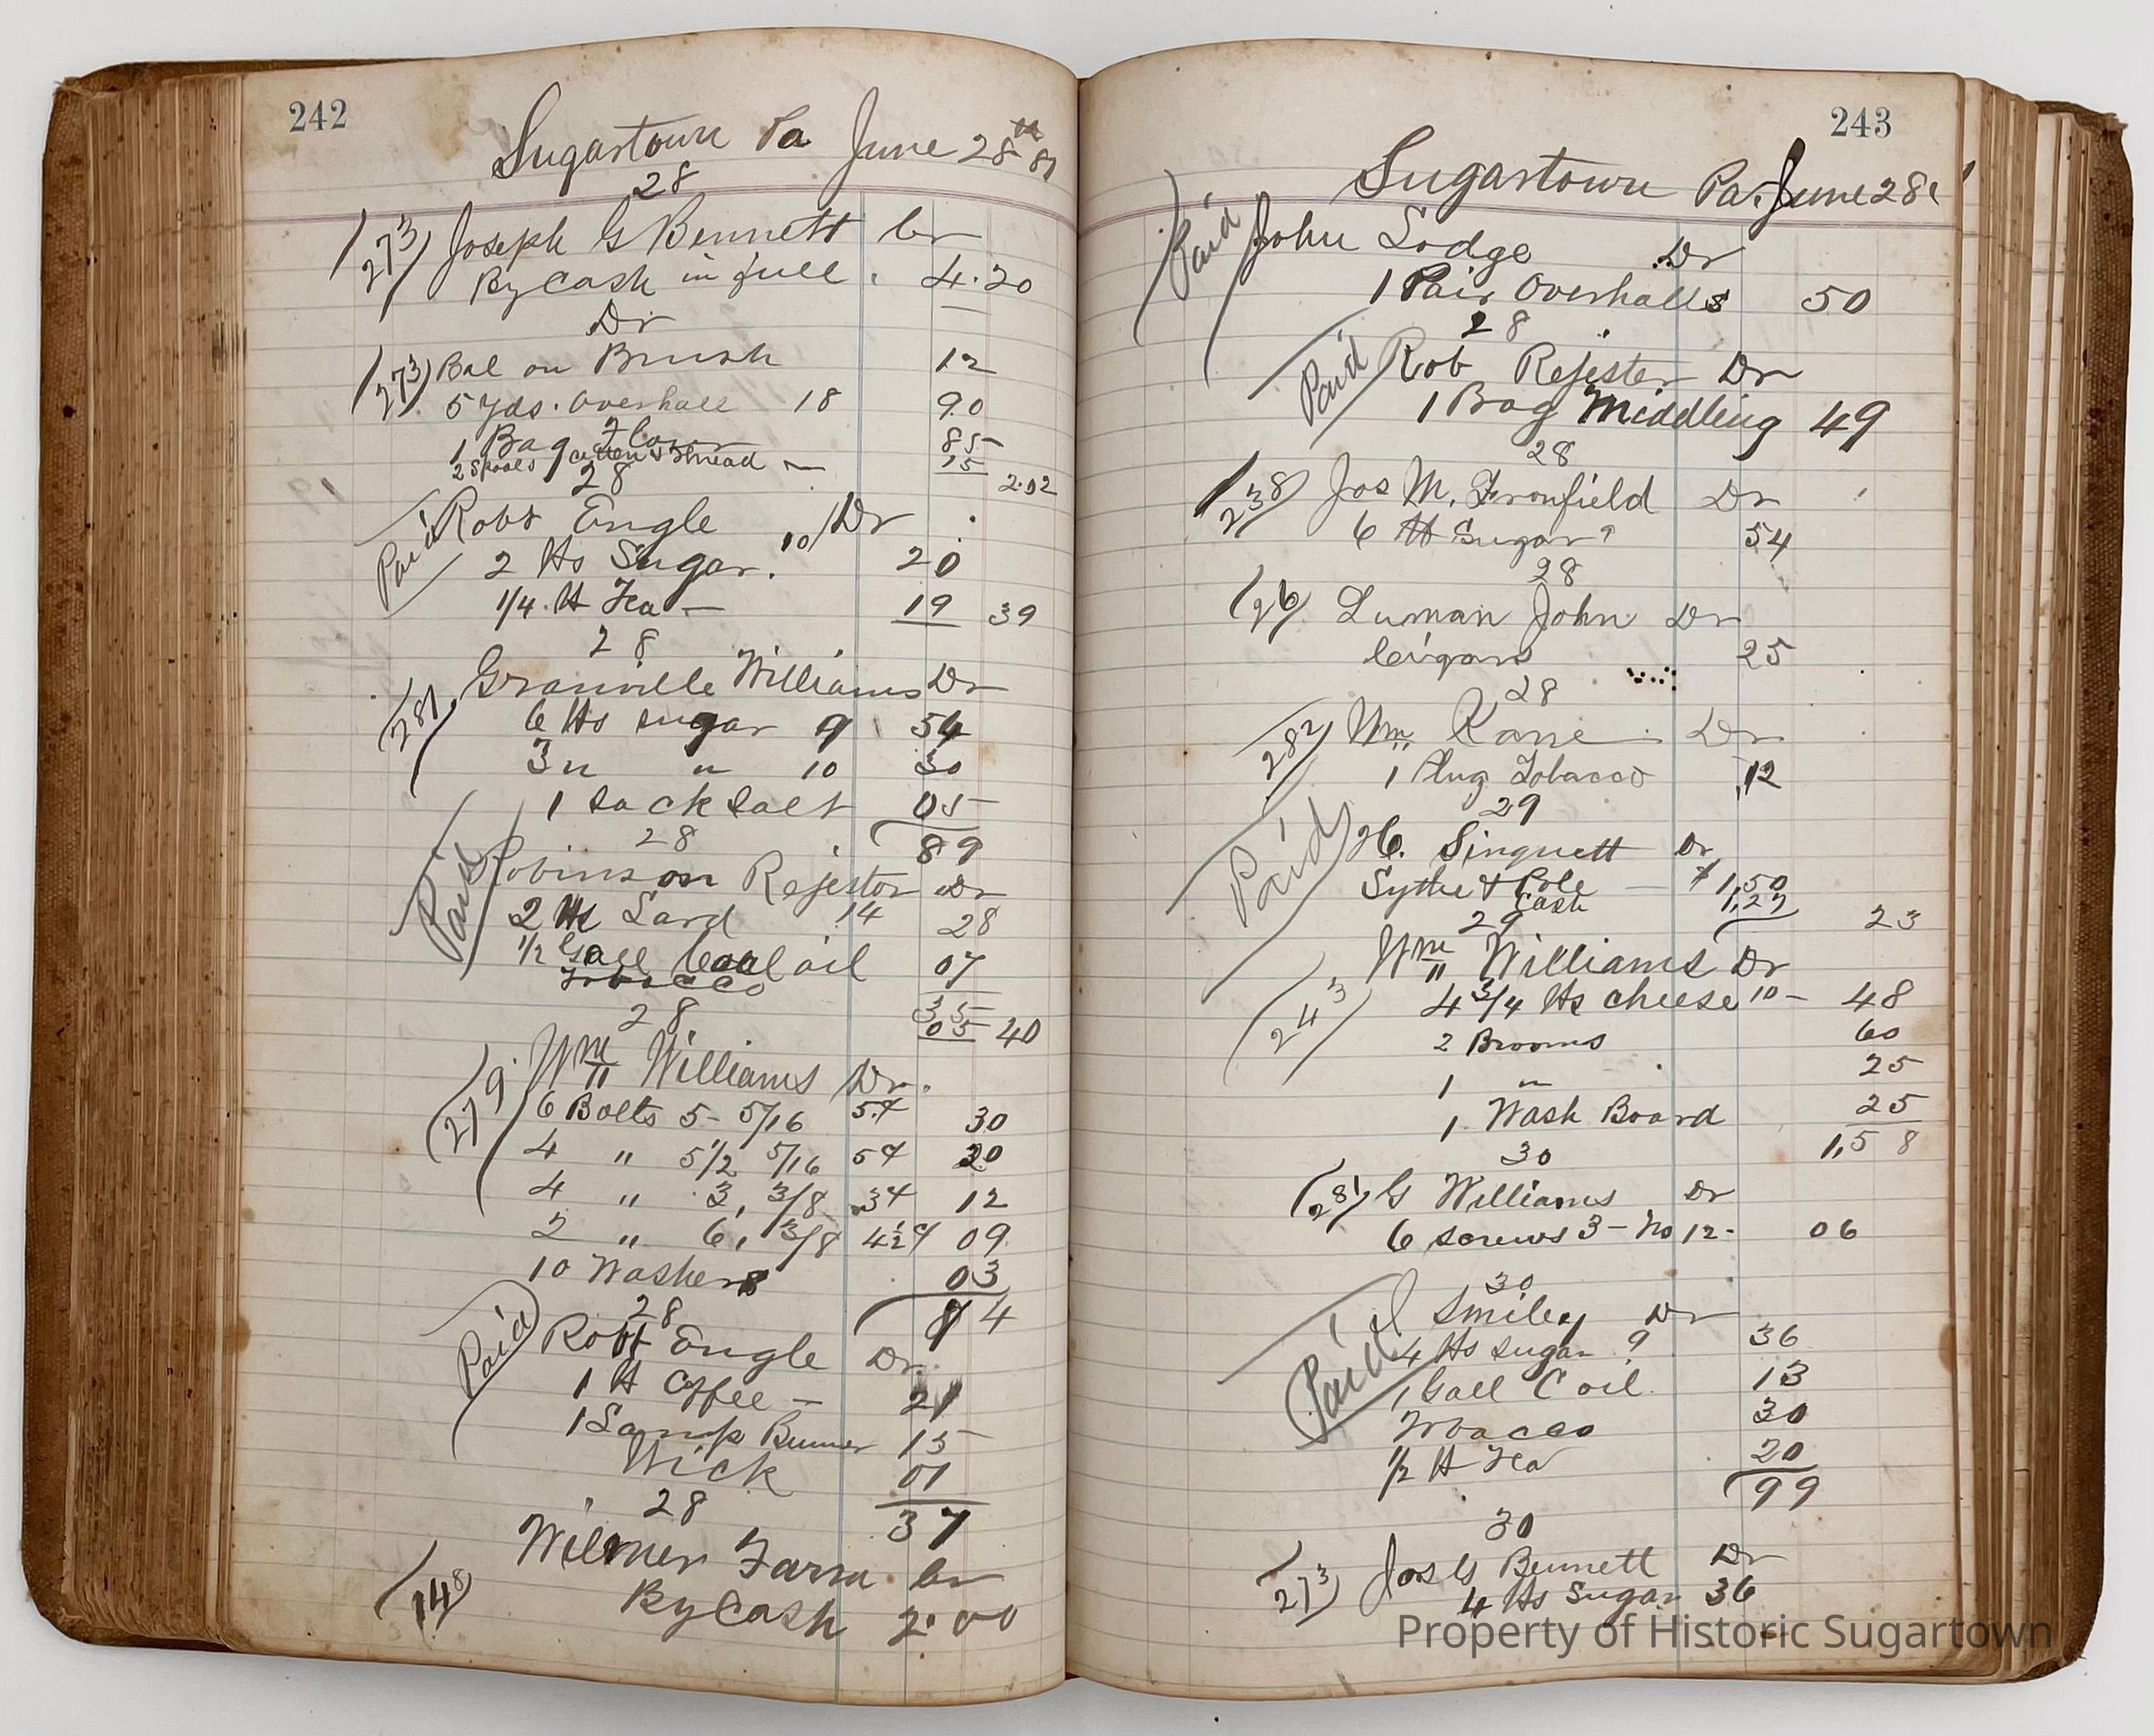 242
Sugartown Pa June 28th 81
28
273 Joseph G Bennett Cr
By Cash in full 4.20
Dr
273 Bal on Brush 12
5 yds. Overhall 18 90
1 Bag Flour 85
2 Spools Cotton & Thread — 15 2.02
28
Paid Robt Engle Dr
2 lbs Sugar. 10 20
1/4 lb Tea — 19 39
28
281 Granville Williams Dr
6 lbs sugar 9 54
3 " " 10 30
1 Sack Salt 05
89
28
Paid Robinson Rejester Dr
2 lbs Lard 14 28
1/2 Gall Coal oil 07
Tobacco 35
05 40
28
279 Wm Williams Dr.
6 Bolts 5 - 5/16 5¢ 30
4 " 5 1/2 5/16 5¢ 20
4 " 3, 3/8 3¢ 12
2 " 6, 3/8 4½¢ 09
10 Washers 03
84
28
Paid Robt Engle Dr.
1 lb Coffee — 21
1 Lamp Burner 15
Wick 01
37
28
Wilmer Farra Cr
148 By Cash 2.00
243
Sugartown Pa. June 28
Paid John Lodge Dr
1 Pair Overhalls 50
28
Paid Rob Rejester Dr
1 Bag Middling 49
28
238 Jos M. Fronfield Dr
6 lb Sugar 9 54
28
26 Luman John Dr
Cigars 25
28
282 Wm Kane Dr
1 Plug Tobacco 12
29
Paid H. Singuett Dr
Sythe & Pole — $1,50
Cash 1,27 23
29
Wm Williams Dr
243 4 3/4 lbs cheese 10 - 48
2 Brooms 60
1 " 25
1 Wash Board 25
1,58
30
281 G Williams Dr
6 screws 3 - No 12 - 06
30
Paid J Smiley Dr
4 lbs sugar 9 36
1 Gall C oil 13
Tobacco 30
1/2 lb Tea 20
99
30
273 Jos G Bennett Dr
4 lbs Sugar 36
Property of Historic Sugartown